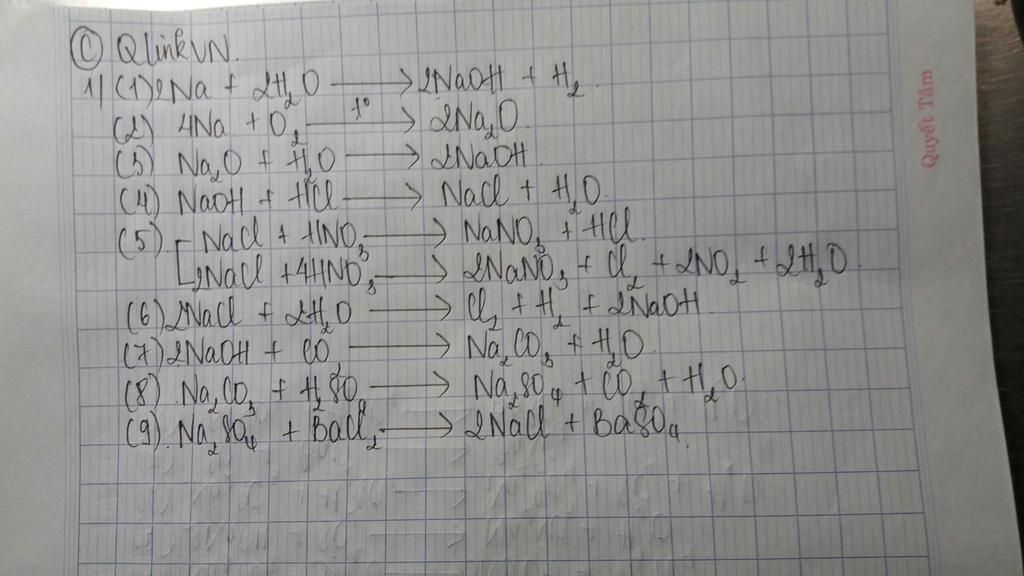 © QlinkVN.
1) (1) 2Na + 2H₂O ⟶ 2NaOH + H₂.
(2) 4Na + O₂ —t°→ 2Na₂O.
(3) Na₂O + H₂O ⟶ 2NaOH.
(4) NaOH + HCl ⟶ NaCl + H₂O.
(5) [ NaCl + HNO₃ ⟶ NaNO₃ + HCl.
2NaCl + 4HNO₃ ⟶ 2NaNO₃ + Cl₂ + 2NO₂ + 2H₂O.
(6) 2NaCl + 2H₂O ⟶ Cl₂ + H₂ + 2NaOH.
(7) 2NaOH + CO₂ ⟶ Na₂CO₃ + H₂O.
(8) Na₂CO₃ + H₂SO₄ ⟶ Na₂SO₄ + CO₂ + H₂O.
(9). Na₂SO₄ + BaCl₂ ⟶ 2NaCl + BaSO₄.
Quyết Tâm